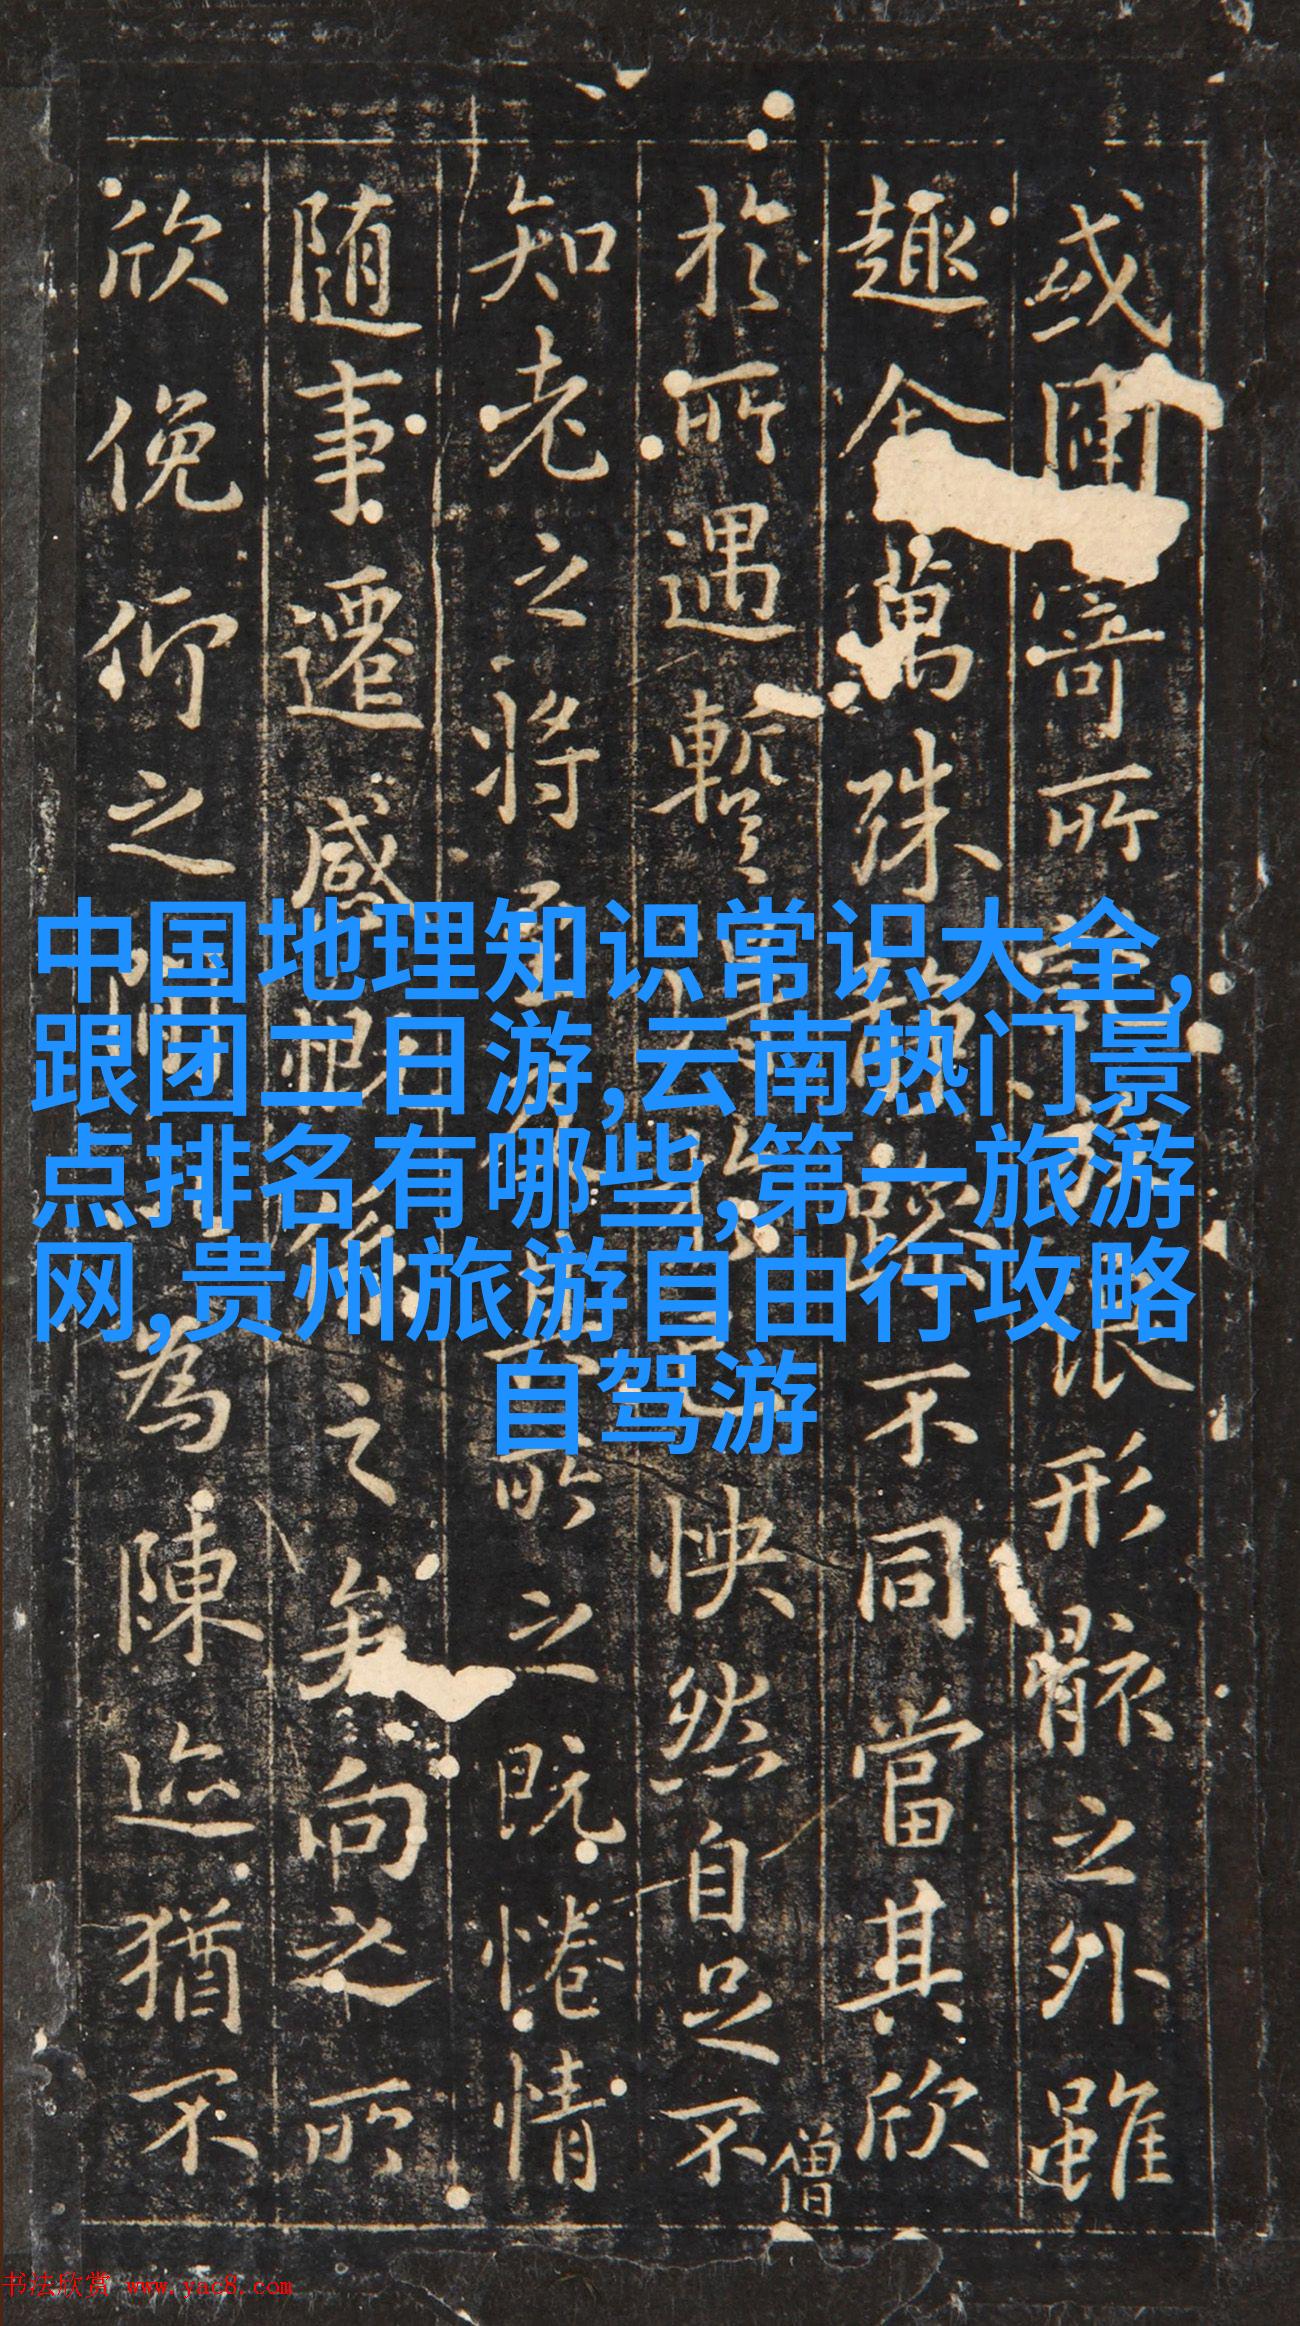 或因寄所託放浪形骸之外雖
趣舍萬殊靜躁不同當其欣
於所遇暫得於己怏然自足不
僧
知老之將至及其所之既惓情
随事遷感慨係之矣向之所
欣俛仰之間以為陳迹猶不
中国地理知识常识大全,
跟团二日游,云南热门景
点排名有哪些,第一旅游
网,贵州旅游自由行攻略
自驾游
书法欣赏 www.yac8.com